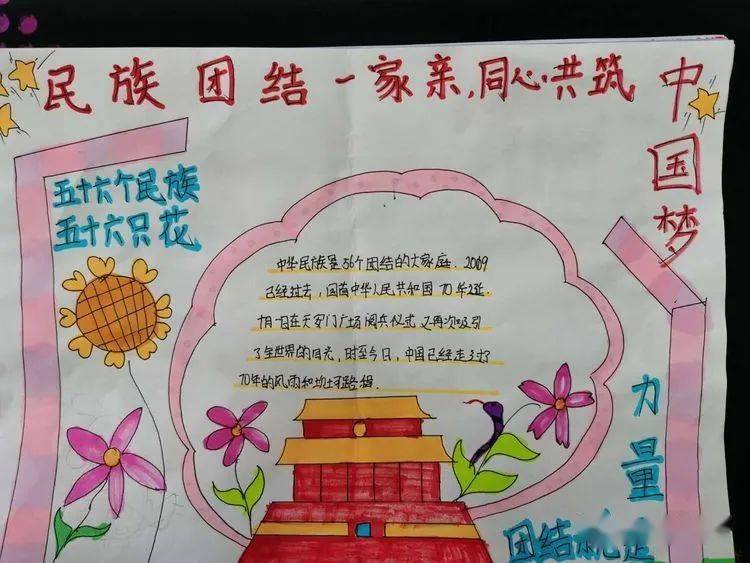 民族团结一家亲,同心共筑
中国梦
五十六个民族
五十六只花
中华民族是56个团结的大家庭.2009
已经过去,回首中华人民共和国70华诞.
10月1日在天安门广场阅兵仪式又再次吸引
了全世界的目光,时至今日,中国已经走过了
70年的风雨和坎坷路程.
团结就是
力量